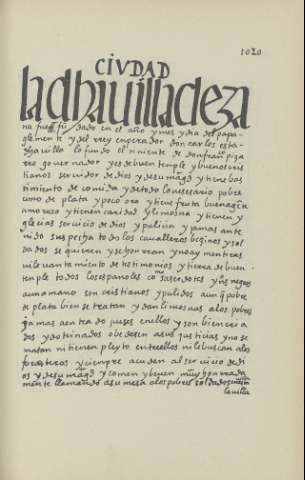 1020
CIVDAD
la dha uilla de za
na fue fũ dado en el año y mes y dia del papa
y del rey enperador don carlos esta
dha uilla lo fundo el tiniente de don franco piza
rro gouernador y es de buen temple y buenos cris
tianos seruidor de dios y de su magd y tiene bas
timiento de comida y de todo lo nesesario pobre
como de plata y poco oro y tiene fruta buena gẽte
amoroso y tienen caridad y limosna y tienen y
glecias seruicio de dios y pulicia y jamas an te
nido sus pecha todos los caualleros bezinos y sol
dados se quieren y se honrran y no ay mentiras
ni leuantamiento de testimonios y tierra de buen
temple todos los españoles como saserdotes y yns negros
aun a mano son cristianos y pulidos aunq̃ pobre
de plata bien se tratan y dan limosnas a los pobres
jamas aentrado jueses en ellos y son bien cria
dos y dotrinados obedesen a sus justicias y no se
matan ni tienen pleyto entre ellos ni le buscan a los
forasteros y cienpre acuden al seruicio de di
os y de su magd y comen y beuen muy honrrada
mente llamando a su mesa a los pobres soldados
la uilla